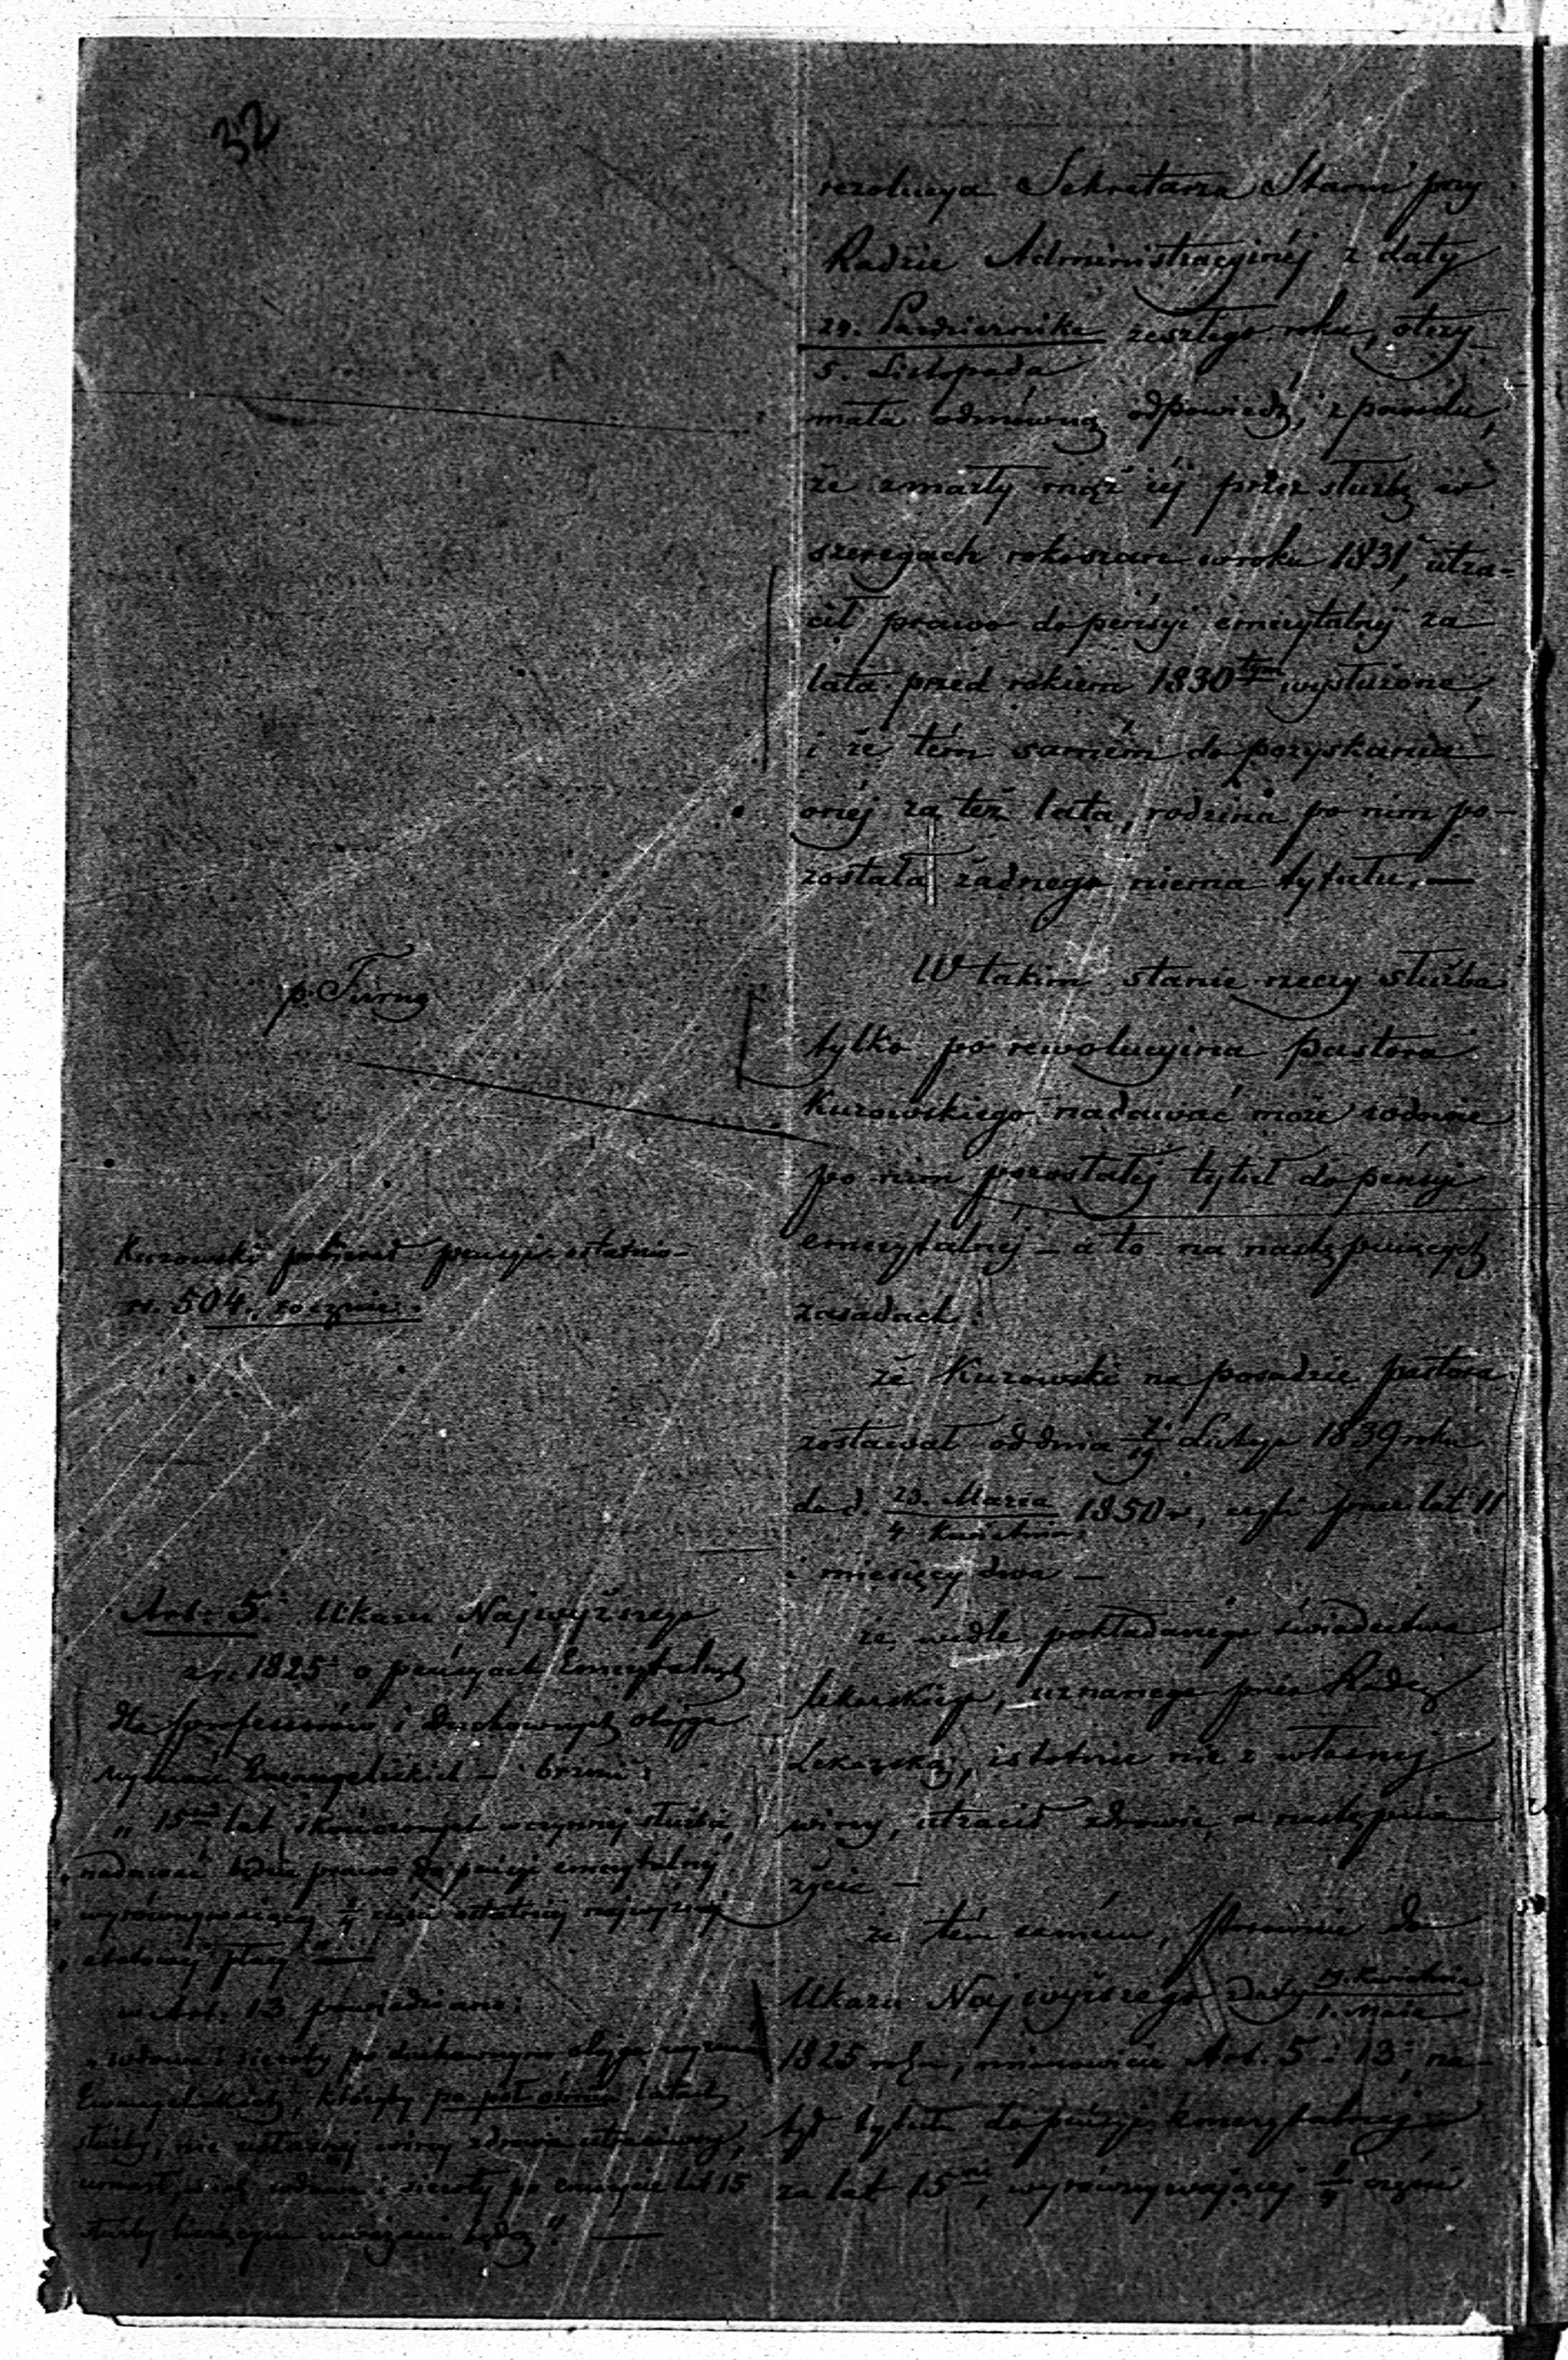 32
rezolucya Sekretarza Stanu przy
Radzie Administracyinéj z daty
24. Października zeszłego roku, otrzy-
5. Listopada
mała odmówną odpowiedź, z powodu,
że zmarły mąż iéj przez służbę w
szeregach rokoszan w roku 1831, utra-
cił prawo do pensyi emerytalnéj za
lata przed rokiem 1830tym wysłużone,
i że tém samém do pozyskania
onéj za też lata, rodzina po nim po-
zostala żadnego niema tytułu. —
W takim stanie rzeczy służba
tylko po rewolucyina pastora
Kurowskiego nadawać może wdowie
po nim pozostałéj tytuł do pensyi
emerytalnéj — a to na następuiących
zasadach:
że Kurowski na posadzie pastora
zostawał od dnia 7/19 Lutego 1839 roku
do d. 23. Marca 1850 r., czyli przez lat 11
4. Kwietnia
i miesięcy dwa —
że wedle pokładanego świadectwa
lekarskiego, uznanego przez Radę
Lekarską, istotnie nie z własnéj
winy, utracił zdrowie, a następnie
życie —
że tém samém, stosownie do
Ukazu Najwyższego daty 19. Kwietnia
1. Maia
1825 roku, mianowicie Art. 5 i 13, na-
był tytuł do pensyi emerytalnéj
za lat 15, wyrównywaiącéj 1/4 części
Kurowski pobierał pensyi ostatnio
zł. 504. rocznie.
Art. 5. Ukazu Najwyższego
z r. 1825 o pensyach Emerytalnych
dla professorów i duchownych obojga
wyznań Ewangelickich — brzmi:
„ 15 lat skończonych w czynnéj służbie,
nadawać będzie prawo do pensyi emerytalnéj
wyrównywaiącéj 1/4 części ostatniéj najwyższéj
etatowéj płacy" —
w Art. 13 powiedziano:
„ wdowa i sieroty po duchownym obojga wyznań
Ewangelickich, któryby po pół latach
służby, nie z własnéj winy zdrowie utraciwszy,
umarł, iak wdowa i sieroty po emerycie lat 15
służby uważane będą." —